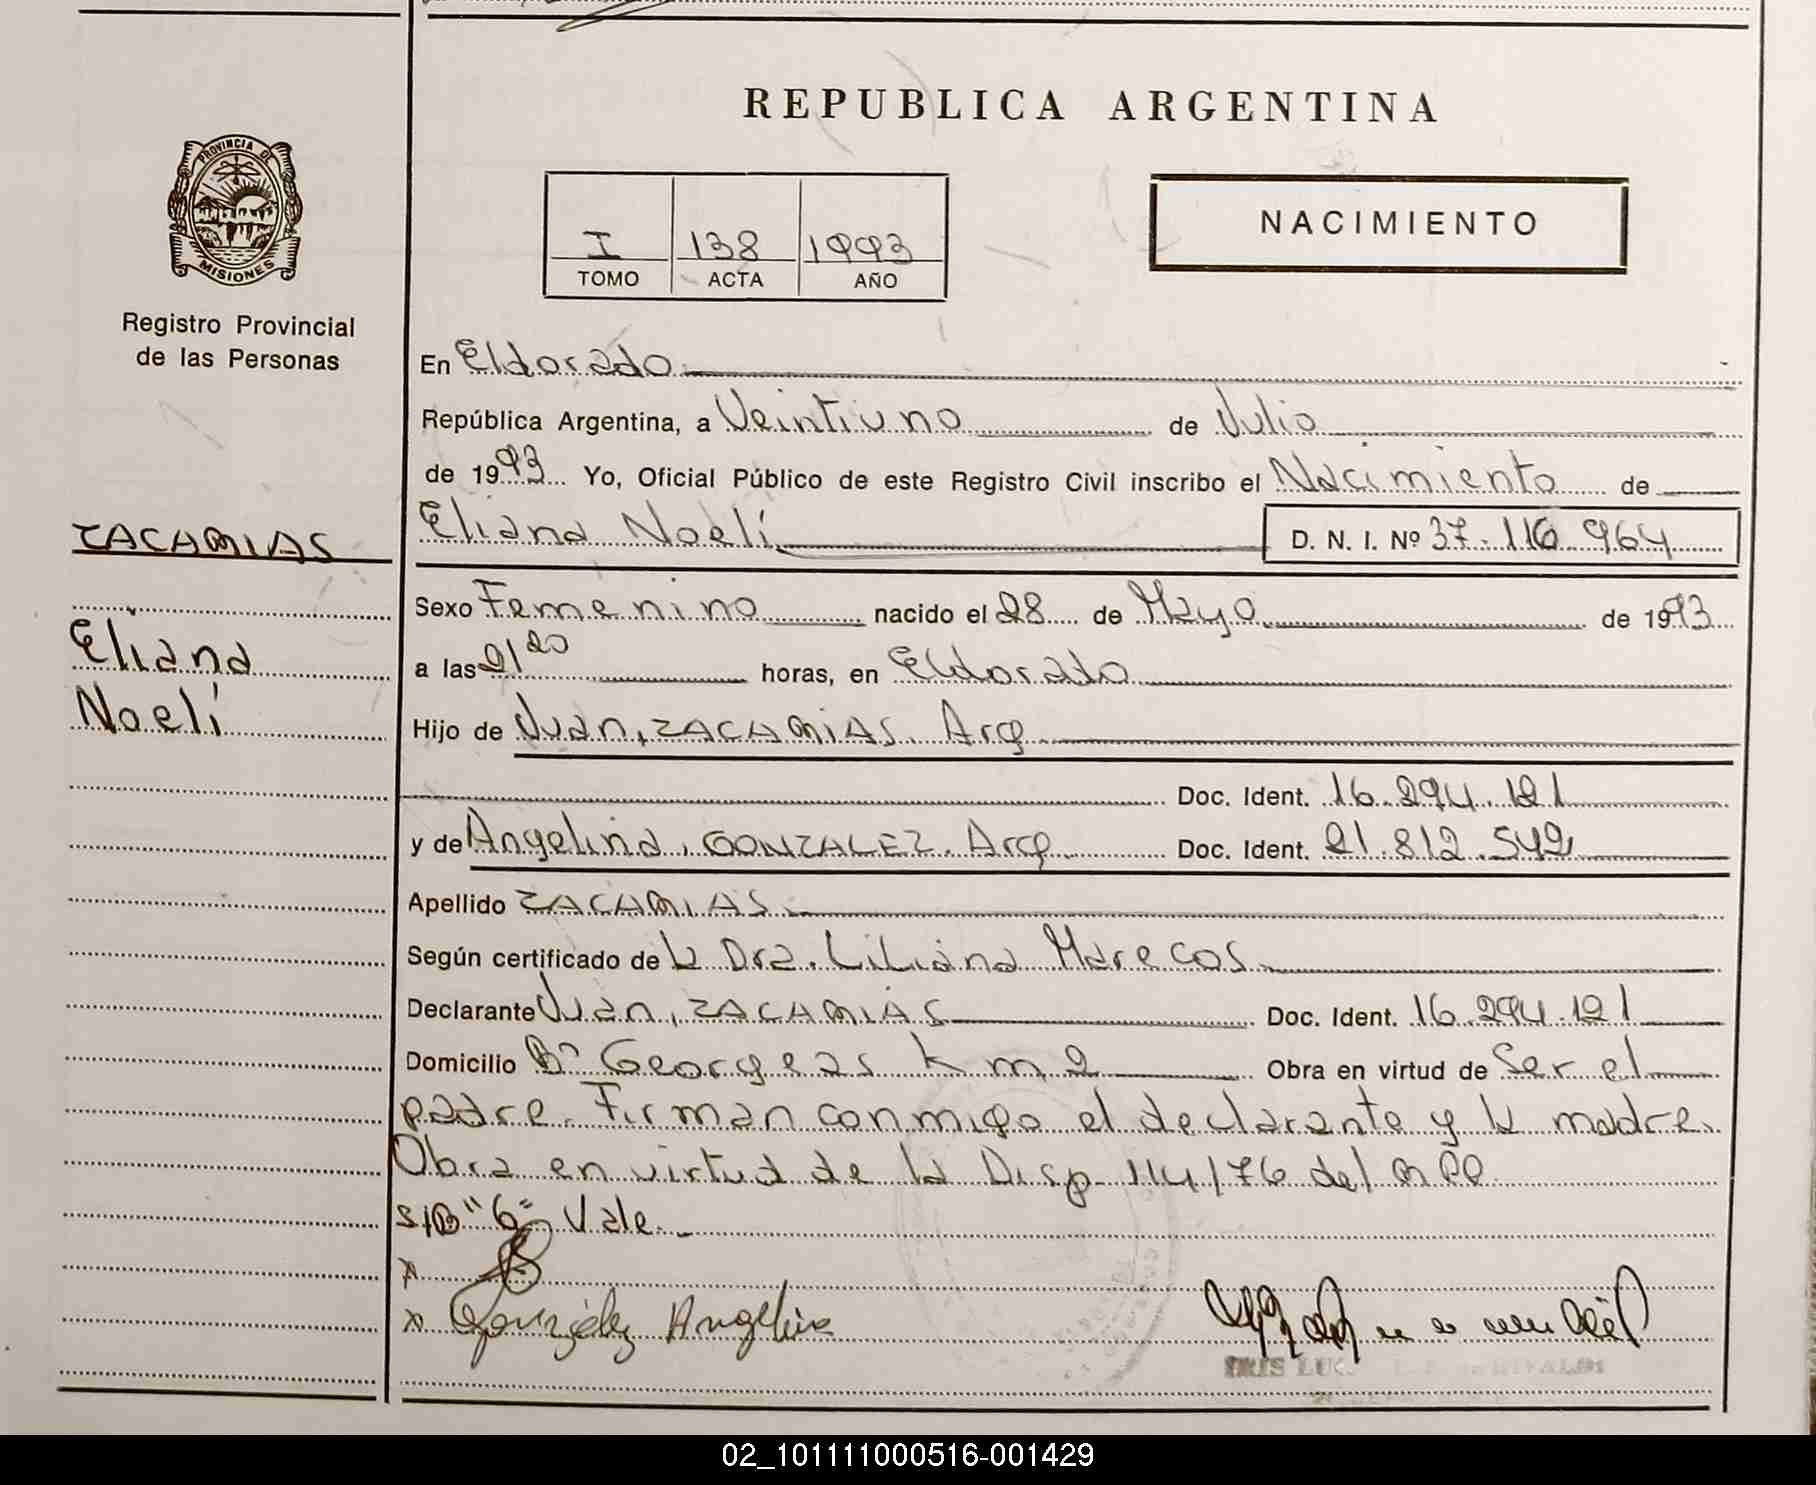 REPUBLICA ARGENTINA
PROVINCIA DE
MISIONES
Registro Provincial
de las Personas
I 138 1993
TOMO ACTA AÑO
NACIMIENTO
En Eldorado
República Argentina, a Veintiuno de Julio
de 1993 Yo, Oficial Público de este Registro Civil inscribo el Nacimiento de
Eliana Noelí D. N. I. Nº 37.116.964
ZACARIAS
Eliana
Noelí
Sexo Femenino nacido el 28 de Mayo de 1993
a las 21 20 horas, en Eldorado
Hijo de Juan, ZACARIAS. Arg
Doc. Ident. 16.294.121
y de Angelina, GONZALEZ. Arg. Doc. Ident. 21.812.542
Apellido ZACARIAS.
Según certificado de la Dra. Liliana Marecos.
Declarante Juan, ZACARIAS Doc. Ident. 16.294.121
Domicilio Bº Georgeas km 2 Obra en virtud de Ser el
padre. Firman conmigo el declarante y la madre.
Obra en virtud de la Disp. 114/76 del RPP
S/B "6" Vale.
x
x González Angelina
IRIS
02_101111000516-001429